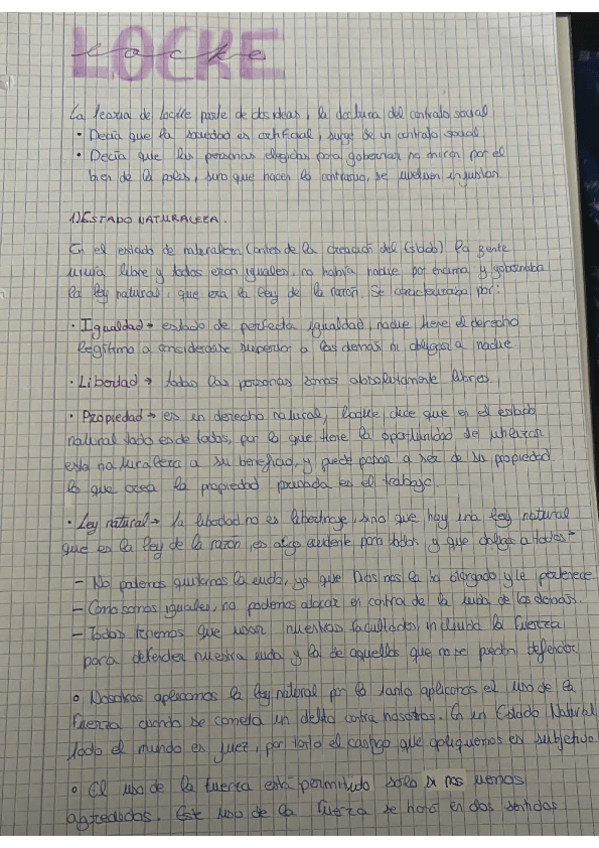 LOCKE
Locke
La teoría de Locke parte de dos ideas, la doctrina del contrato social
• Decía que la sociedad es artificial, surge de un contrato social
• Decía que las personas elegidas para gobernar no miran por el
bien de la polis, sino que hacen lo contrario, se vuelven injustos.
1) ESTADO NATURALEZA.
En el estado de naturaleza (antes de la creación del Estado) la gente
vivía libre y todos eran iguales, no había nadie por encima y gobernaba
la ley natural, que era la ley de la razón. Se caracterizaba por:
• Igualdad → estado de perfecta igualdad, nadie tiene el derecho
legítimo a considerarse superior a los demás ni obligar a nadie
• Libertad → todas las personas somos absolutamente libres
• Propiedad → es un derecho natural, Locke dice que en el estado
natural todo es de todos, por lo que tiene la oportunidad de utilizar
esta naturaleza a su beneficio, y puede pasar a ser de su propiedad
lo que crea la propiedad privada es el trabajo.
• Ley natural → la libertad no es libertinaje, sino que hay una ley natural
que es la ley de la razón, es algo evidente para todos y que obliga a todos
– No podemos quitarnos la vida, ya que Dios nos la ha otorgado y le pertenece.
– Como somos iguales, no podemos atacar en contra de la vida de los demás.
– Todos tenemos que usar nuestras facultades, incluida la fuerza
para defender nuestra vida y la de aquellos que no se puedan defender
o Nosotros aplicamos la ley natural por lo tanto aplicamos el uso de la
fuerza cuando se cometa un delito contra nosotros. En un Estado Natural
todo el mundo es juez, por tanto el castigo que apliquemos es subjetivo
o El uso de la fuerza está permitido solo si nos vemos
agredidos. Este uso de la fuerza se hará en dos sentidos